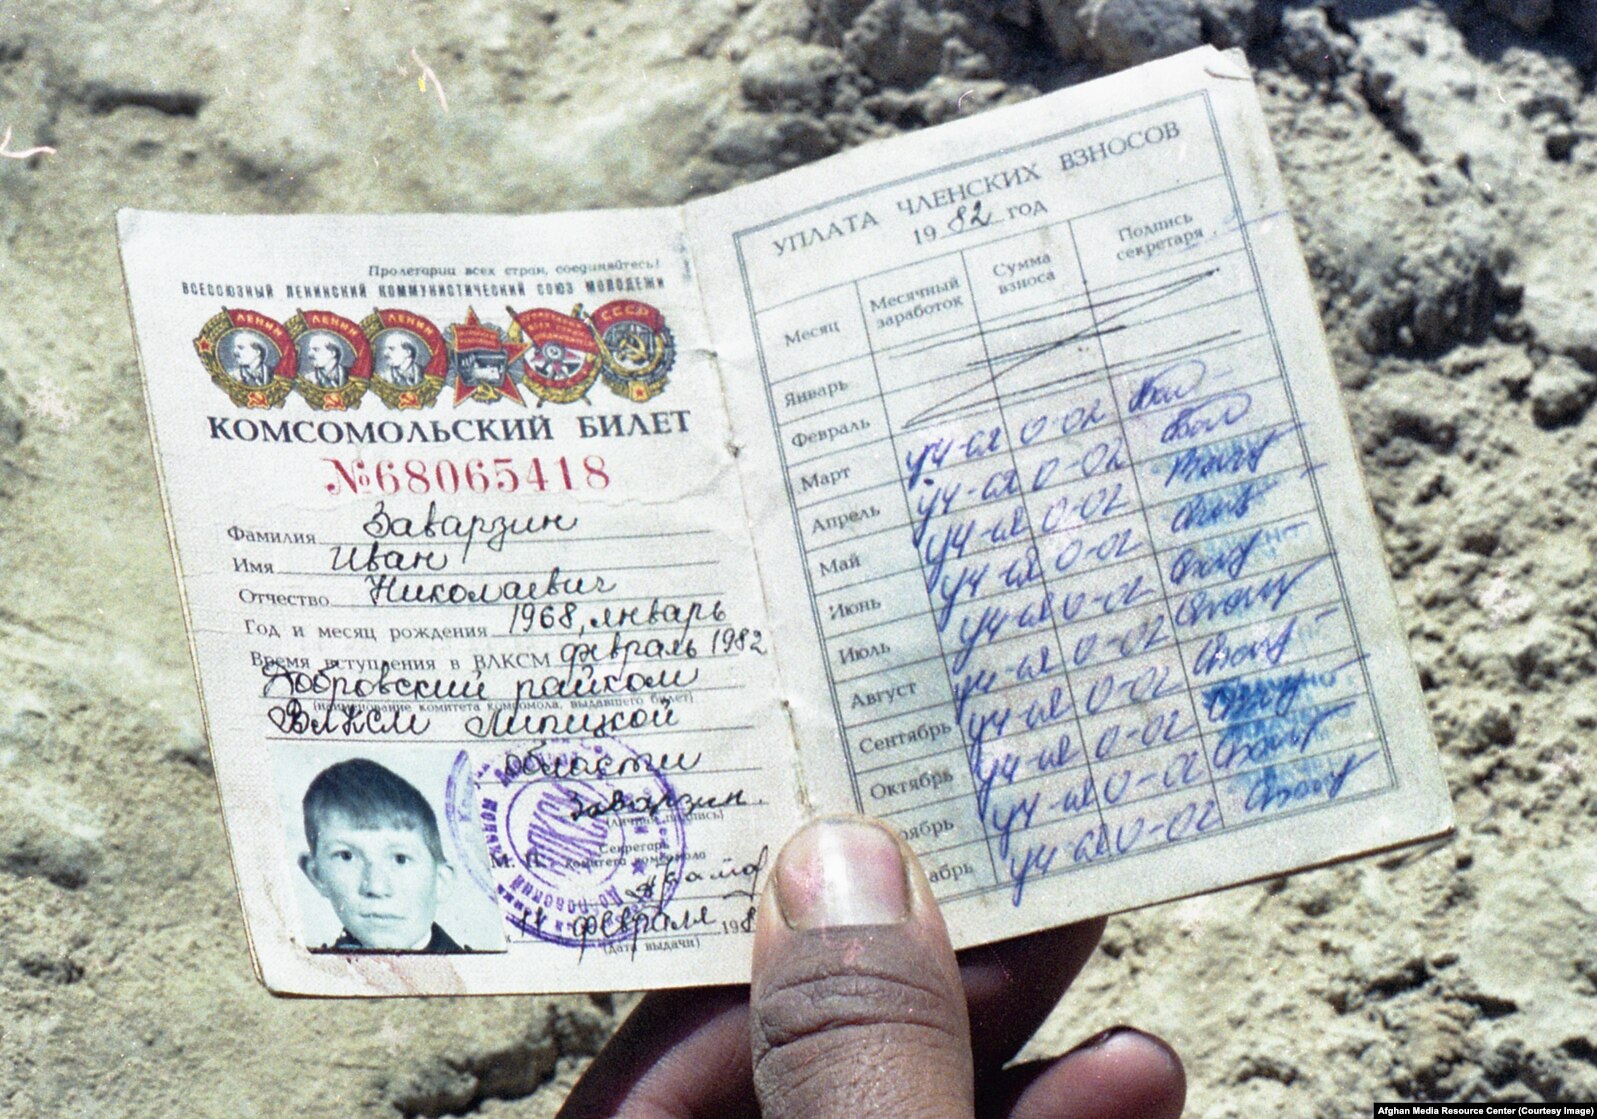 Пролетарии всех стран, соединяйтесь!
ВСЕСОЮЗНЫЙ ЛЕНИНСКИЙ КОММУНИСТИЧЕСКИЙ СОЮЗ МОЛОДЕЖИ
ЛЕНИН ЛЕНИН ЛЕНИН СССР
КОМСОМОЛЬСКИЙ БИЛЕТ
№68065418
Фамилия Заварзин
Имя Иван
Отчество Николаевич
Год и месяц рождения 1968, январь
Время вступления в ВЛКСМ февраль 1982
Добровский райком
(наименование комитета комсомола, выдавшего билет)
ВЛКСМ Липецкой
области
Заварзин.
(личная подпись)
Секретарь
М. П. комитета комсомола
14 февраля 198
(дата выдачи)
УПЛАТА ЧЛЕНСКИХ ВЗНОСОВ
1982 год
Месяц Месячный заработок Сумма взноса Подпись секретаря
Январь
Февраль
Март уч-ся 0-02
Апрель уч-ся 0-02
Май уч-ся 0-02
Июнь уч-ся 0-02
Июль уч-ся 0-02
Август уч-ся 0-02
Сентябрь уч-ся 0-02
Октябрь уч-ся 0-02
оябрь уч-ся 0-02
абрь уч-ся 0-02
Afghan Media Resource Center (Courtesy Image)